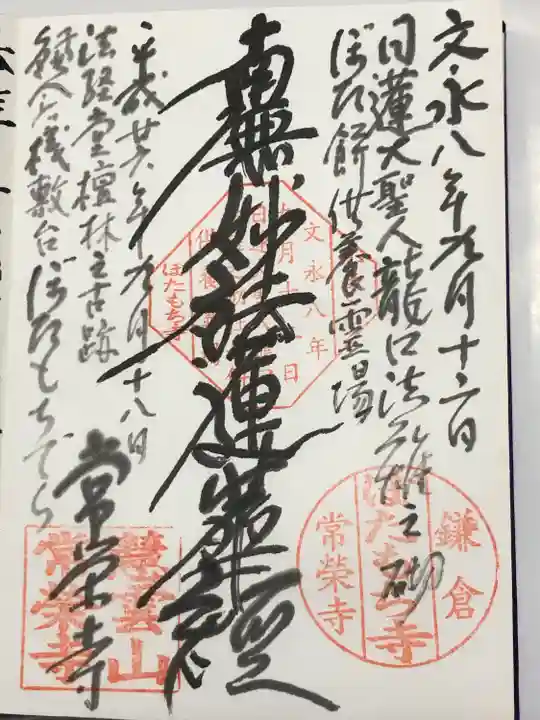 文永八年九月十二日
日蓮大聖人龍口法難之砌
ぼた餅供養霊場
南無妙法蓮華経
平成廿六年九月十八日
法経堂檀林之古跡
鎌倉桟敷台ぼたもちでら
常栄寺
文永八年
九月十二日
ぼたもち寺
鎌倉
ぼたもち寺
常榮寺
慧雲山
常栄寺